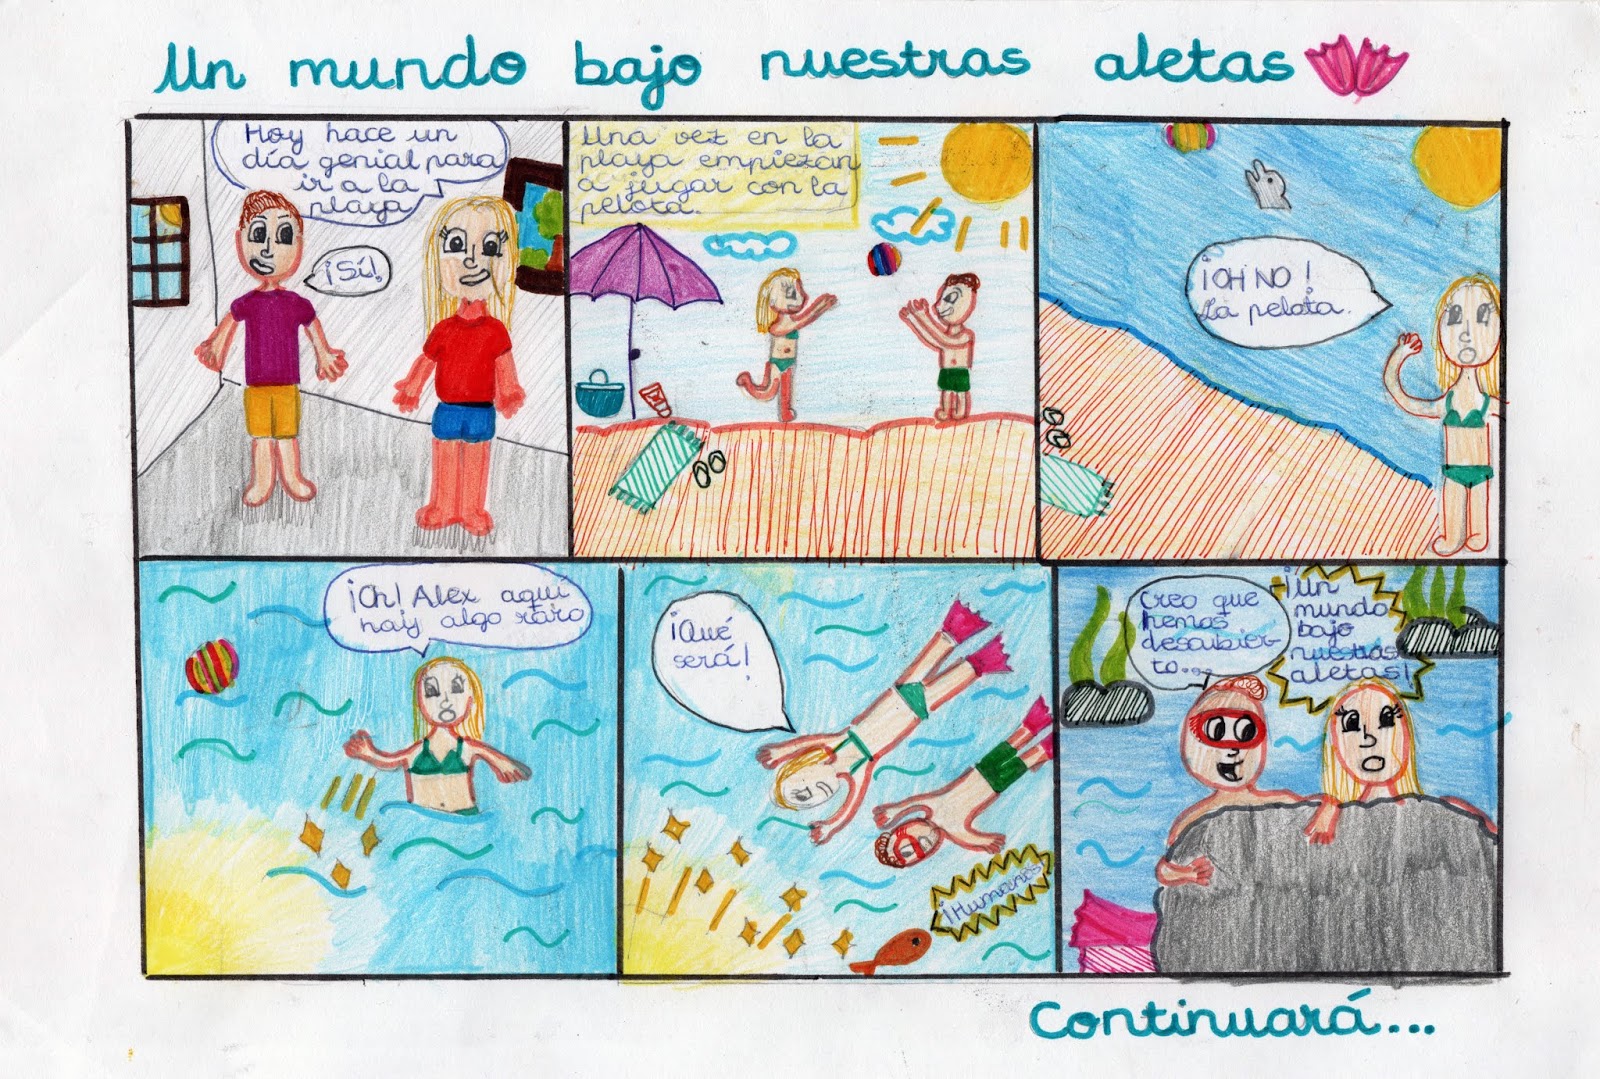 Un mundo bajo nuestras aletas
Hoy hace un
día genial para
ir a la
playa
¡Sí!
Una vez en la
playa empiezan
a jugar con la
pelota.
¡OH NO!
La pelota.
¡Oh! Alex aquí
hay algo raro
¡Qué
será!
¡Humanos
Creo que
hemos
descubier-
to...
¡Un
mundo
bajo
nuestras
aletas!
Continuará...